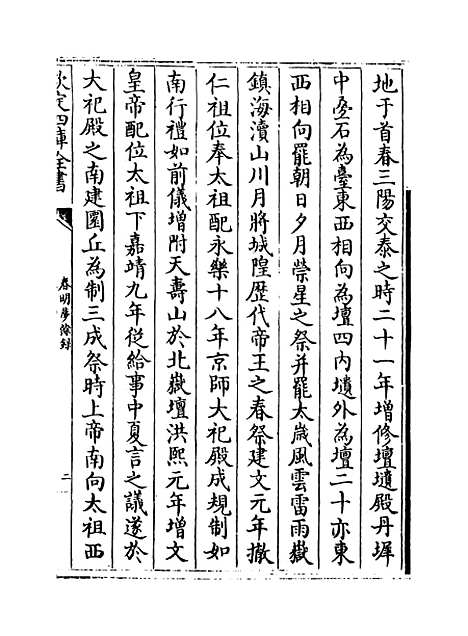 地于首春三陽交泰之時二十一年增修壇壝殿丹墀
中壘石為臺東西相向為壇四内壝外為壇二十亦東
西相向罷朝日夕月禜星之祭并罷太歳風雲雷雨嶽
鎮海瀆山川月將城隍歴代帝王之春祭建文元年撤
仁祖位奉太祖配永樂十八年京師大祀殿成規制如
南行禮如前儀增附天壽山於北嶽壇洪熙元年增文
皇帝配位太祖下嘉靖九年從給事中夏言之議遂於
大祀殿之南建圜丘為制三成祭時上帝南向太祖西
欽定四庫全書
春明夢餘錄
二